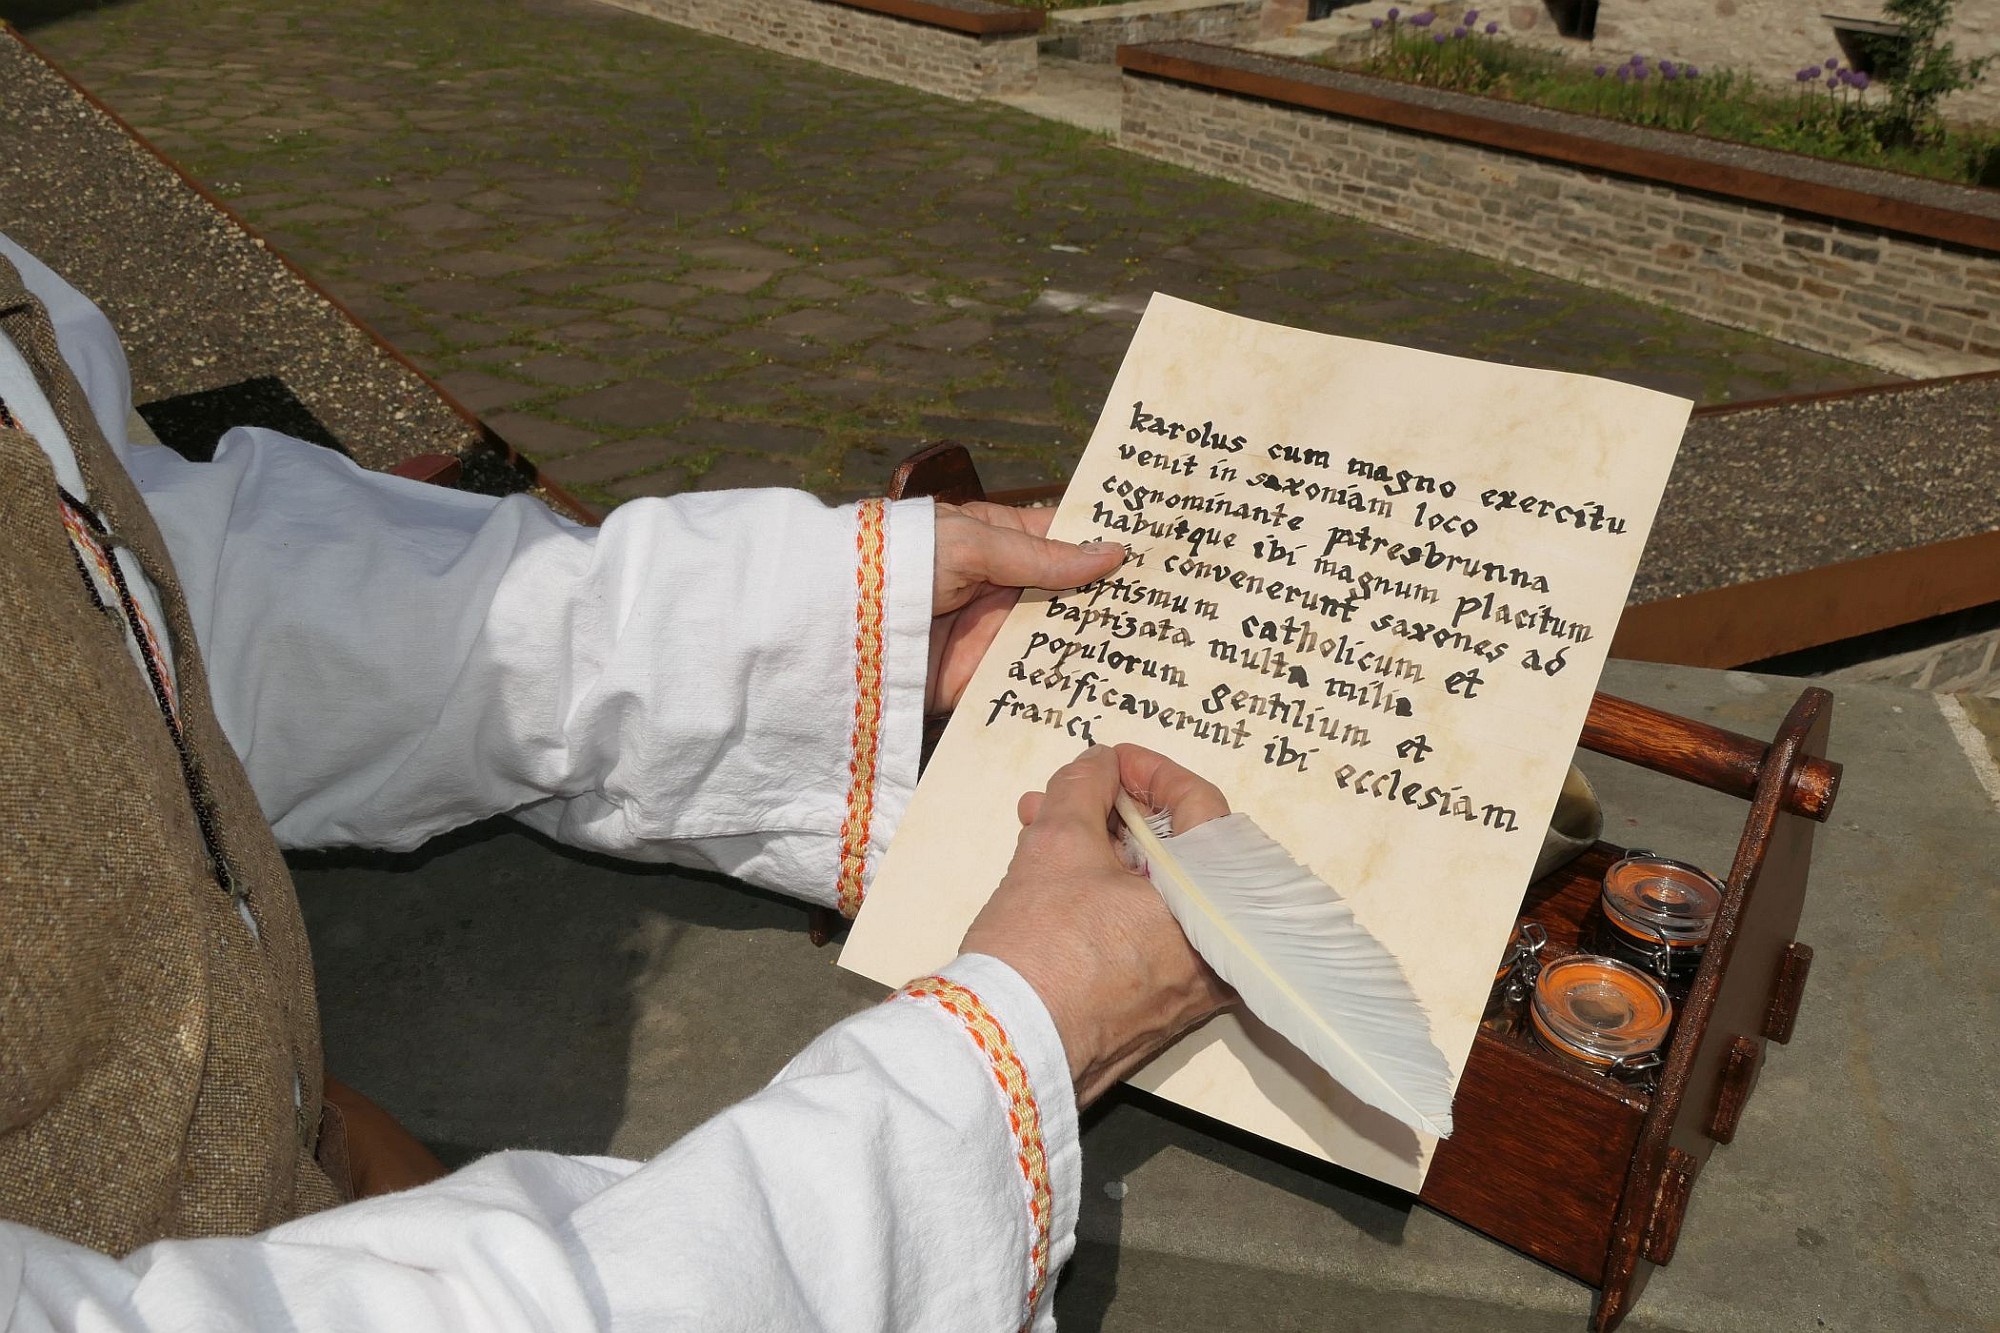 karolus cum magno exercitu
venit in saxoniam loco
cognominante patresbrunna
habuitque ibi magnum placitum
convenerunt saxones ad
catholicum et
baptizata multa milia
populorum gentilium et
aedificaverunt ibi ecclesiam
franci